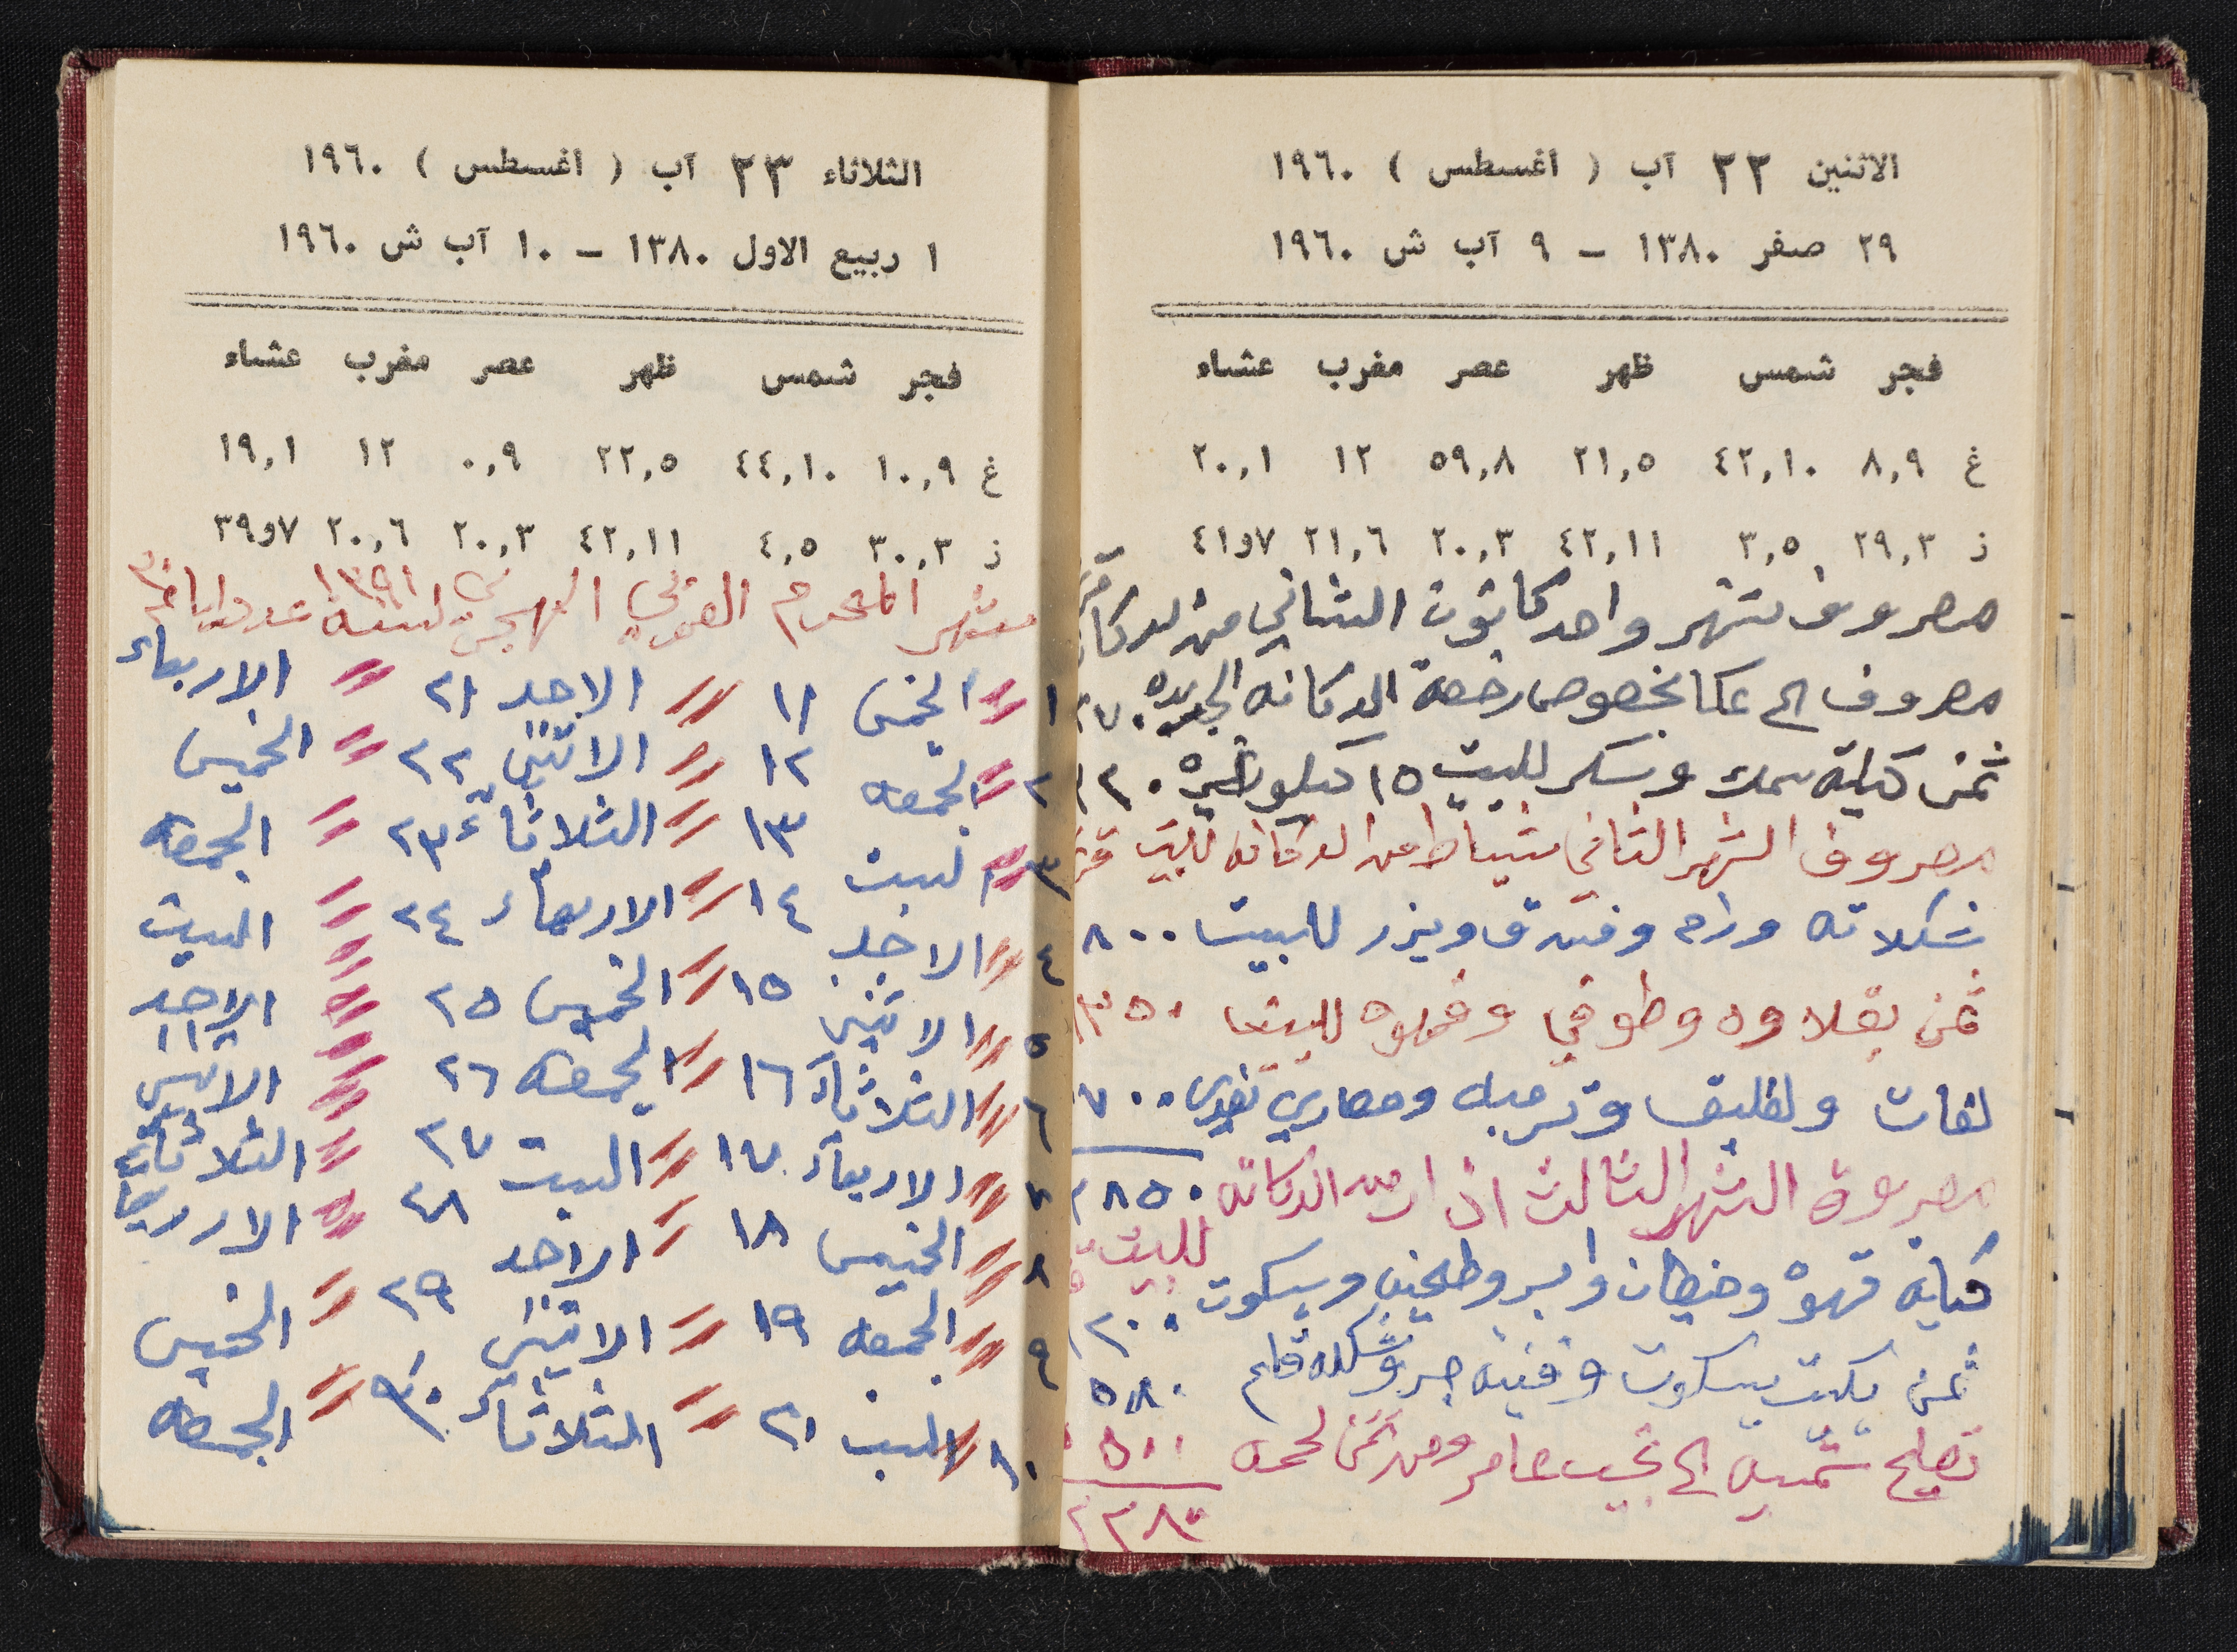 الاثنين ٢٢ آب ( أغسطس ) ١٩٦٠
٢٩ صفر ١٣٨٠ – ٩ آب ش ١٩٦٠
فجر شمس ظهر عصر مغرب عشاء
غ ٨,٩ ٤٢,١٠ ٢١,٥ ٥٩,٨ ١٢ ٢٠,١
ز ٢٩,٣ ٣,٥ ٤٢,١١ ٢٠,٣ ٢١,٦ ٧و٤١
مصروف شهر واحد كانون الثاني من
مصروف الى عكا بخصوص رخصة الدكانه الجديده
ثمن كيلة سمك وسكر للبيت ١٥ كيلو
مصروف الشهر الثاني شباط من الدكانه للبيت
شكلاته ورام وفستق وبزر للبيت ٨٠٠
ثمن بقلاوه وطوفي وقهوه للبيت
ومصاري ٧٠٠
مصروف الشهر الثالث اذار من الدكانه ٢٨٥٠
للبيت
قهوة وخيطان وابر وطحين وبسكوت
ثمن بكيت بسكوت وقنينه حبر وشكله قلم ٥٨٠
تصليح شمسيه الى نجيب عامر ومن ثمن لحمه
٢٢٨٠
الثلاثاء ٢٣ آب ( أغسطس ) ١٩٦٠
١ ربيع الاول ١٣٨٠ – ١٠ آب ش ١٩٦٠
فجر شمس ظهر عصر مغرب عشاء
غ ١٠,٩ ٤٤,١٠ ٢٢,٥ ٠,٩ ١٢ ١٩,١
ز ٣٠,٣ ٤,٥ ٤٢,١١ ٢٠,٣ ٢٠,٦ ٧و٣٩
شهر المحرم الهجري لسنة ١٣٩١ عدد ايامه ٣٠
١ // الخمس ١١ // الاحد ٢١ // الاربعاء
٢ // الجمعه ١٢ // الاثنين ٢٢ // الخميس
٣ // لسبت ١٣ // الثلاثاء ٢٣ // الجمعه
٤ // الاحد ١٤ // الاربعاء ٢٤ // السبت
٥ // الاثنين ١٥ // الخميس ٢٥ // الاحد
٦ // الثلاثاء ١٦ // الجمعه ٢٦ // الاثنين
٧ // الاربعاء ١٧ // السبت ٢٧ // الثلاثاء
٨ // الخميس ١٨ // الاحد ٢٨ // الاربعا
٩ // الجمعه ١٩ // الاثنين ٢٩ // الخميس
١٠ // السبت ٢١ // الثلاثاء ٣٠ // الجمعه